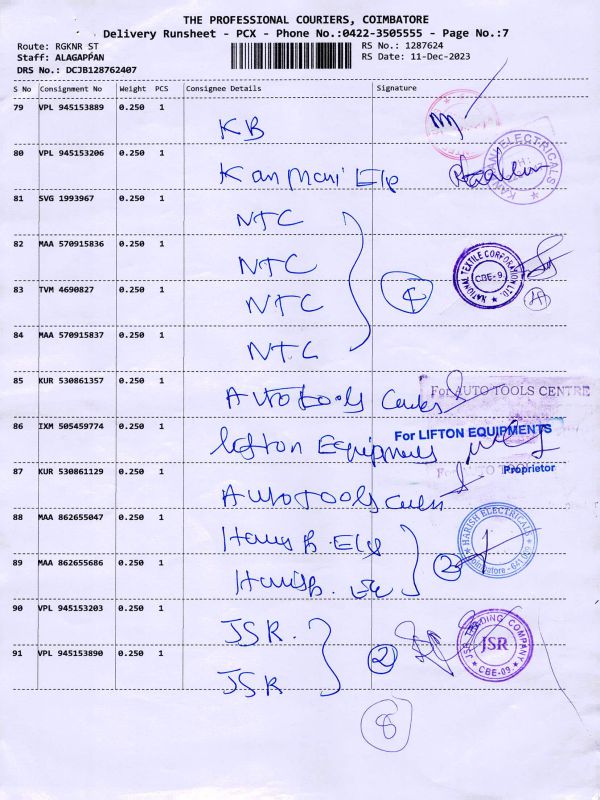 THE PROFESSIONAL COURIERS, COIMBATORE
Delivery Runsheet - PCX - Phone No.:0422-3505555 - Page No.:7
Route: RGKNR ST RS No.: 1287624
Staff: ALAGAPPAN RS Date: 11-Dec-2023
DRS No.: DCJB128762407
S No Consignment No Weight PCS Consignee Details Signature
79 VPL 945153889 0.250 1
KB
80 VPL 945153206 0.250 1
Kanmani Ele
KANMANI ELECTRICALS
81 SVG 1993967 0.250 1
NTC
82 MAA 570915836 0.250 1
NTC
NATIONAL TEXTILE CORPORATION LTD.
CBE-9
83 TVM 4690827 0.250 1
NTC
4
84 MAA 570915837 0.250 1
NTC
85 KUR 530861357 0.250 1
Auto tools
For AUTO TOOLS CENTRE
86 IXM 505459774 0.250 1
Lifton Equipments
For LIFTON EQUIPMENTS
Proprietor
87 KUR 530861129 0.250 1
Auto tools
88 MAA 862655047 0.250 1
Harish Ele
HARISH ELECTRICALS
2
89 MAA 862655686 0.250 1
Harish Ele
90 VPL 945153203 0.250 1
JSR.
JSR TRADING COMPANY
JSR
CBE-09.
2
91 VPL 945153890 0.250 1
JSR
8